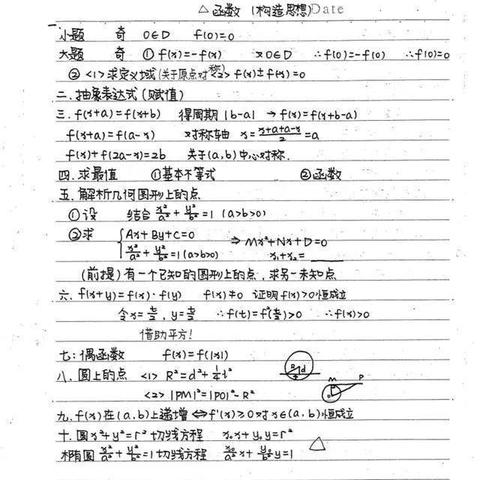 △函数 (构造思想) Date
一.
小题 奇 0∈D f(0)=0
大题 奇 ① f(x)=-f(x) ∵0∈D ∴f(0)=-f(0) ∴f(0)=0
② <1>求定义域(关于原点对称) <2> f(x)±f(x)=0
二.抽象表达式(赋值)
三. f(x+a)=f(x+b) 得周期 |b-a| → f(x)=f(x+b-a)
f(x+a)=f(a-x) 对称轴 x=(x+a+a-x)/2=a
f(x)+f(2a-x)=2b 关于(a,b)中心对称.
四.求最值 ①基本不等式 ②函数
五.解析几何图形上的点
①设 结合 x²/a²+y²/b²=1 (a>b>0)
②求 {Ax+By+C=0
x²/a²+y²/b²=1 (a>b>0) ⇒ Mx²+Nx+D=0
x₁+x₂=
(前提)有一个已知的图形上的点,求另一未知点
六. f(x+y)=f(x)·f(y) f(x)≠0 证明f(x)>0恒成立
令x=x/2, y=x/2 ∴f(t)=f²(t/2)>0 ∴f(x)>0
借助平方!
七:偶函数 f(x)=f(|x|)
八.圆上的点 <1> R²=d²+¼l² d
<2> |PM|²=|PO|²-R² M P
九. f(x)在(a,b)上递增⇔f'(x)≥0对x∈(a,b)恒成立
十.圆x²+y²=r²切线方程 x₀x+y₀y=r² △
椭圆 x²/a²+y²/b²=1切线方程 x₀/a² x+y₀/b² y=1